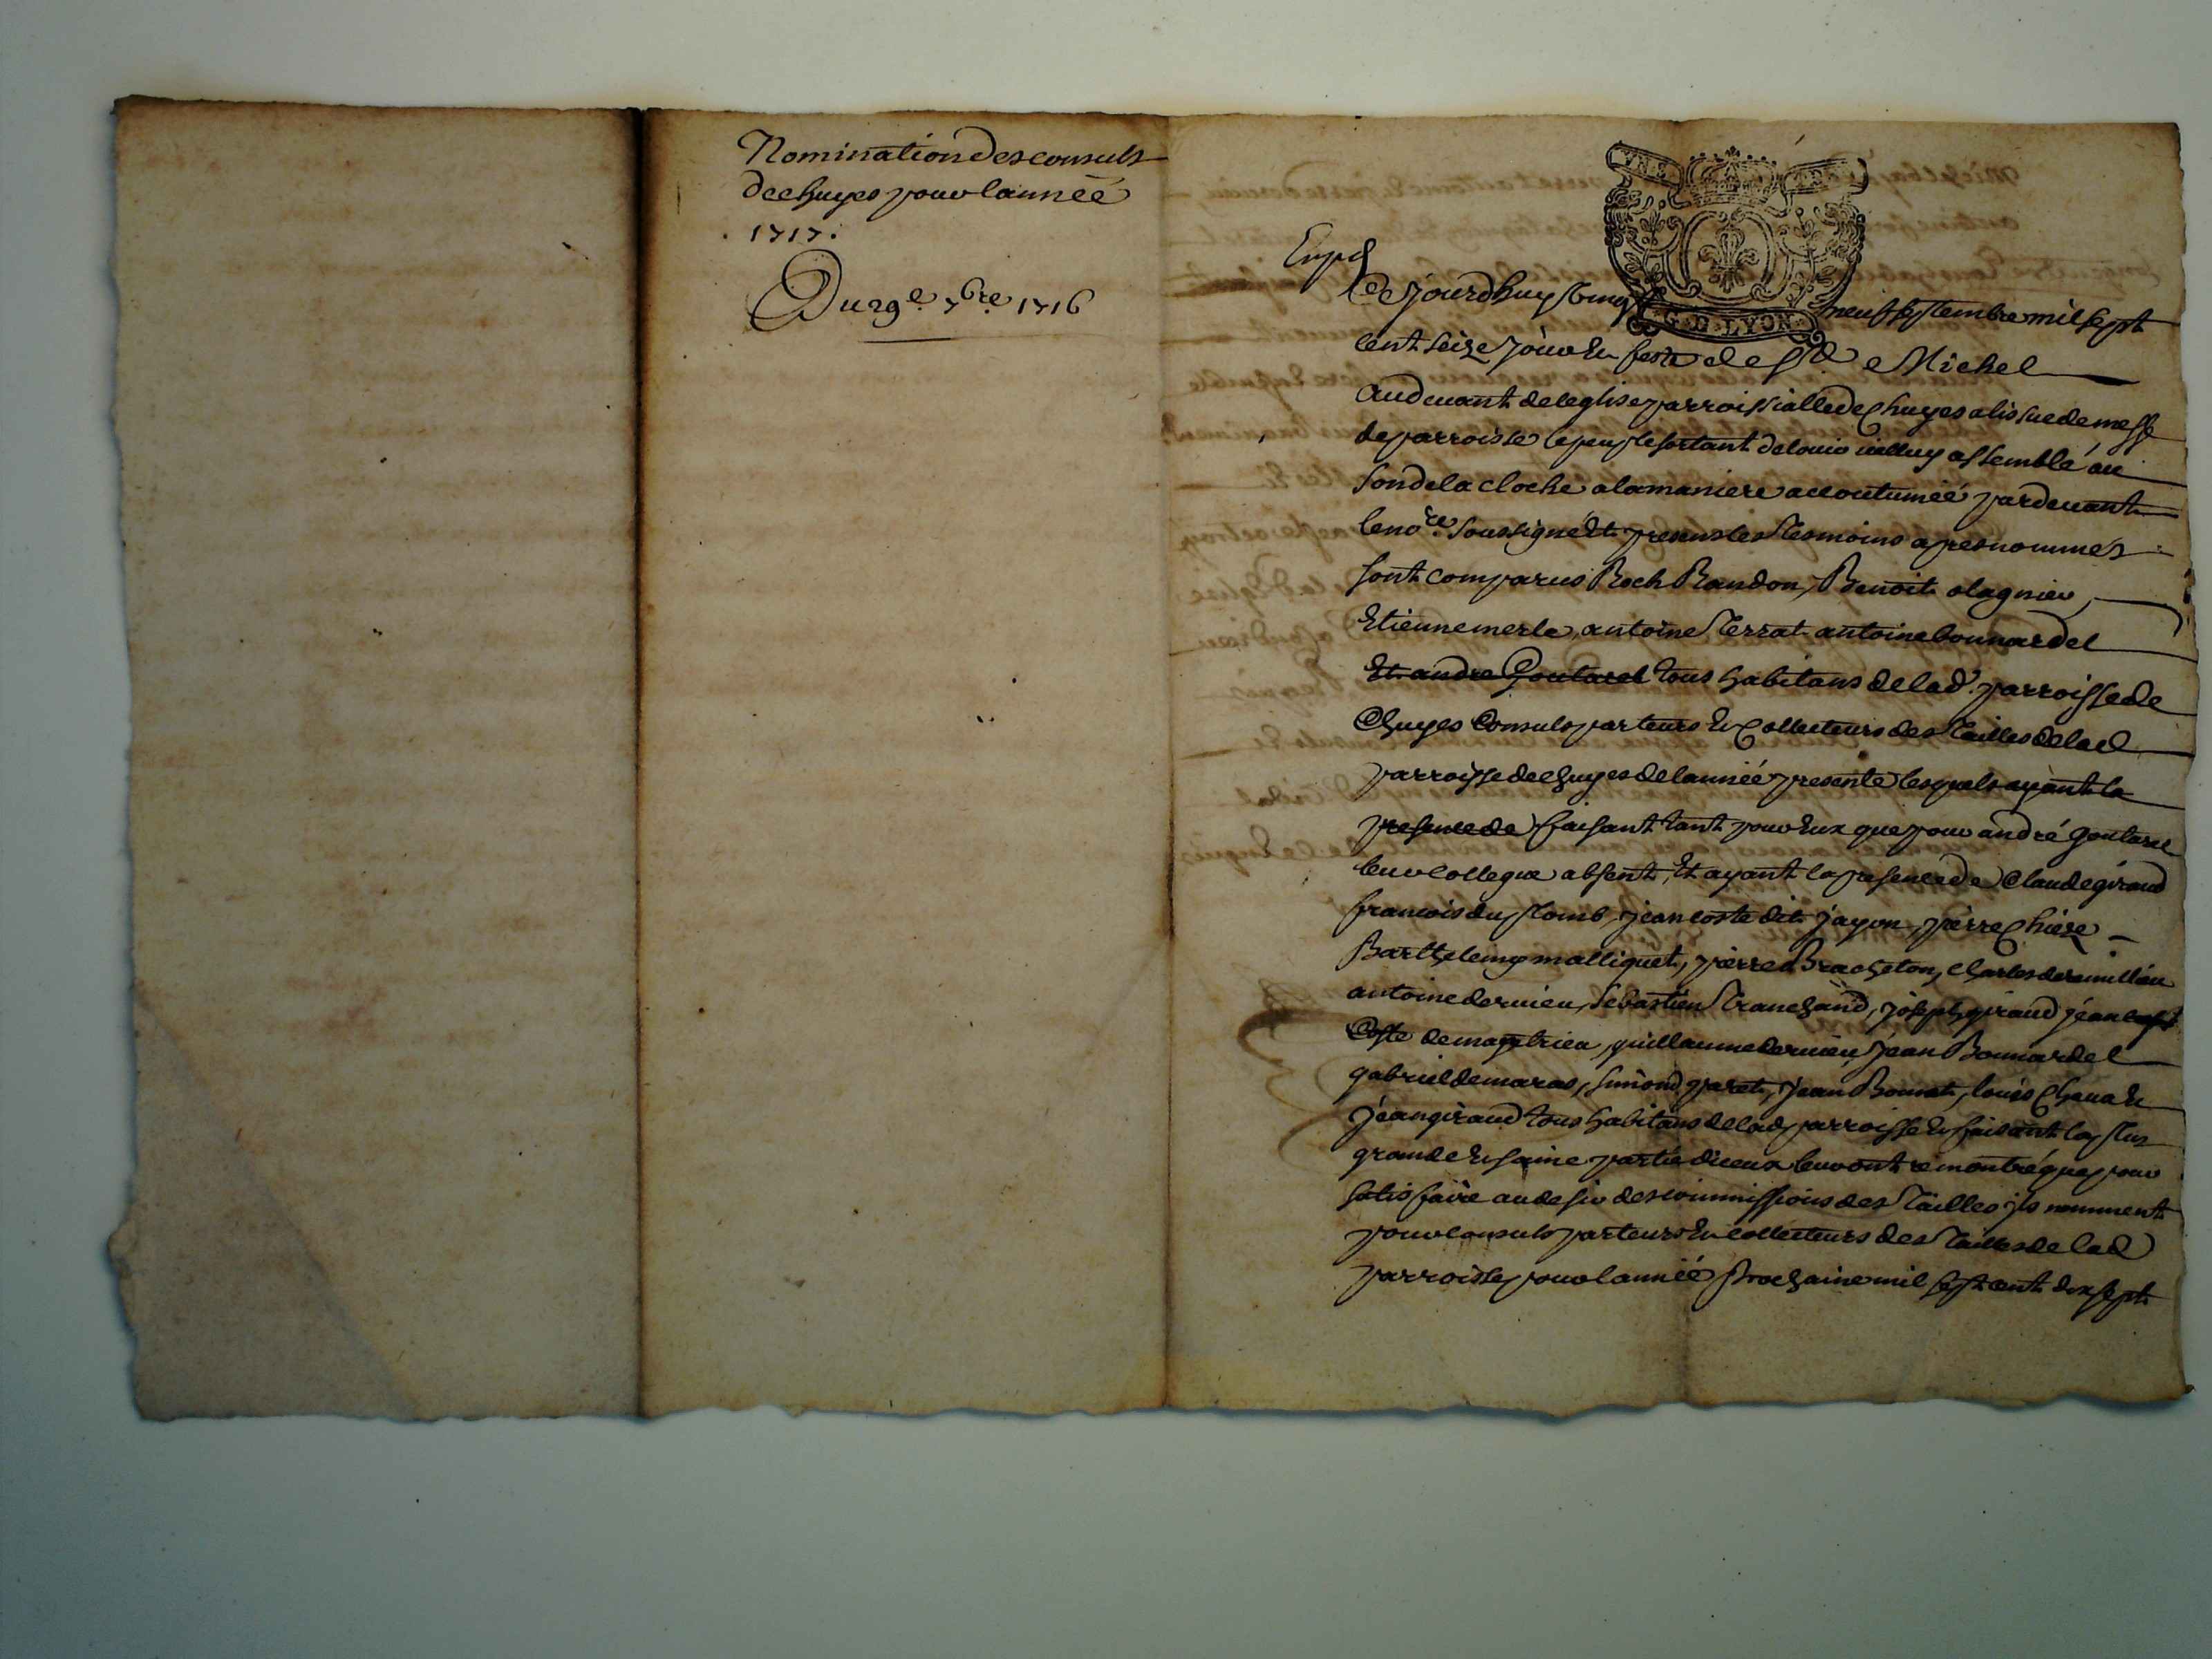 Nomination des consuls
de chuyes pour lannéé
1717.
Du 29e. 7bre. 1716
Expd
G. D. LYON
Ce jourdhuy vingt neuf septembre mil sept
cent seize jour de feste de St. Michel
audeuant de leglise parroissialle de Chuyes a lissue de messe
de parroisse le peuple sortant de louir icelluy assemblé au
son de la cloche a la maniere accoutuméé pardeuant
le nore. soussigné Et presens les tesmoins apres nommés
sont comparus Roch Randon, Benoit olagnier,
Etienne merle, antoine Terrat antoine bonnardel
Et andre Goutarel tous habitans de lad. parroisse de
Chuyes Consuls parteurs Et Collecteurs des Tailles de lad
parroisse de chuyes de lannéé presente lesquels ayant la
presence de faisant tant pour Eux que pour andré goutarel
leur collegue absent, Et ayant la presence de Claude giraud
francois du plomb, jean coste dit jayon, pierre Chieze
Barthelemy malliquet, pierre Bracheton, charles deremillieu
antoine deruieu, Sebastien Tranchand, joseph giraud jean
Coste de maytrieu, guillaume deruieu, jean Bonnardel
gabriel demaras, simond paret, jean Bonnet, louis Chaua Et
jean giraud tous habitans de lad parroisse Et faisant la plus
grande Et saine partie diceux leur ont remontré que pour
satisfaire au desir des commissions des Tailles ils nomment
pour consuls parteurs Et collecteurs des Tailles de lad
parroisse pour lannéé prochaine mil sept cent dix sept